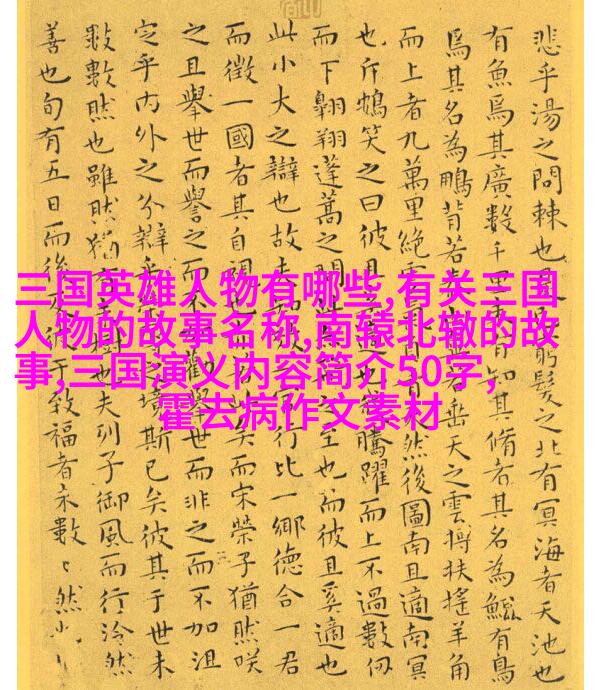 三国英雄人物有哪些,有关三国
人物的故事名称,南辕北辙的故
事,三国演义内容简介50字,
霍去病作文素材
悲乎湯之問棘也是窮髮之北有冥海者天池也
有魚焉其廣數千里有知其脩者其名為鯤有鳥
焉其名為鵬背若垂天之雲摶扶搖羊角
而上者九萬里絕雲然後圖南且適南冥
也斥鴳笑之曰彼且騰躍而上不過數仞
而下翱翔蓬蒿之間之至也而彼且奚適也
此小大之辯也故夫行比一鄉德合一君
而徵一國者其自視也矣而宋榮子猶然咲
之且舉世而譽之而不勸舉世而非之而不加沮
定乎內外之分辯乎之境斯已矣彼其于世未
數數然也雖然猶樹也夫列子御風而行泠然
善也旬有五日而後于致福者未數々然也